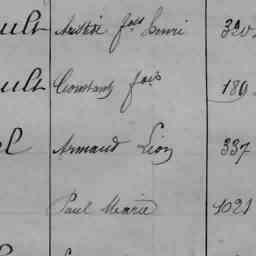 ault Aristide fois Henri 320
ault Constant fois 180
el Armand Léon 337
Paul Marie 1021